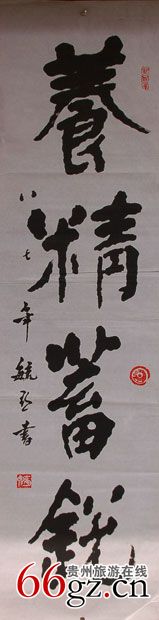 養精蓄銳
八七年毓
书
贵州旅游在线
66gz.cn